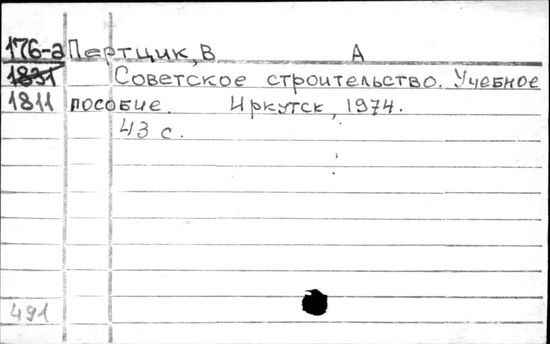 176-а Пертцик, В А
1831 Советское строительство. Учебное
1811 пособие. Иркутск, 1974.
43 с.
491